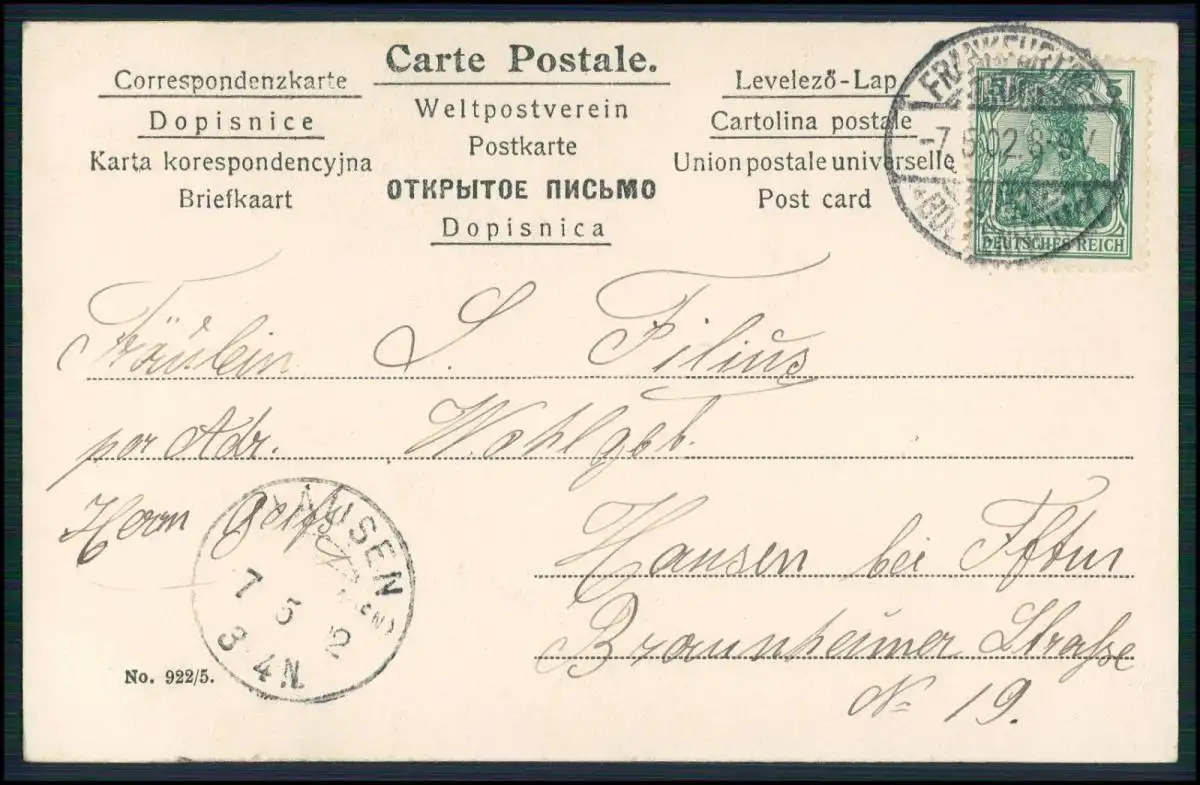 Carte Postale.
Correspondenzkarte
Dopisnice
Karta korespondencyjna
Briefkaart
Weltpostverein
Postkarte
ОТКРЫТОЕ ПИСЬМО
Dopisnica
Levelező-Lap
Cartolina postale
Union postale universelle
Post card
FRANKFURT
-7.5.02. 8-9V.
5
DEUTSCHES REICH
Fräulein S. Filius
per Adr. Wohlgeb.
Herrn
Hausen bei Fftm
Braunheimer Strasse
No 19.
HAUSEN
7 5 2
3 4 N.
No. 922/5.